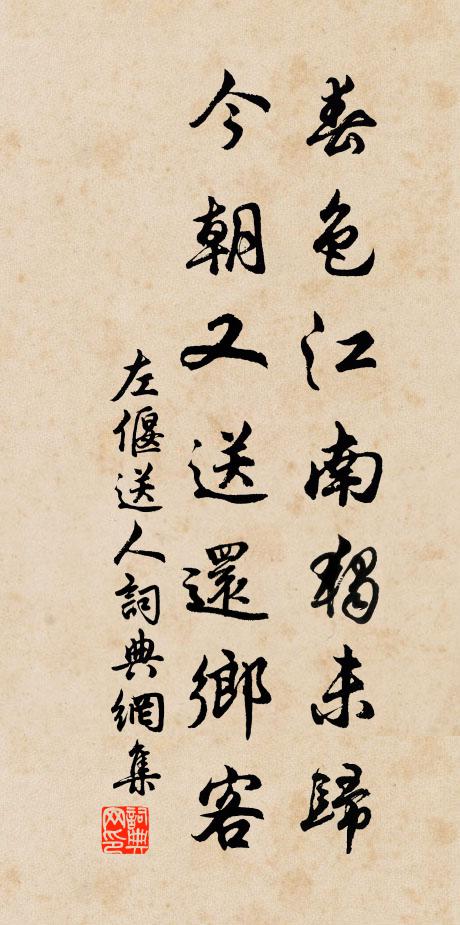 春色江南獨未歸
今朝又送還鄉客
左偃送人詞典網集
詞典網印